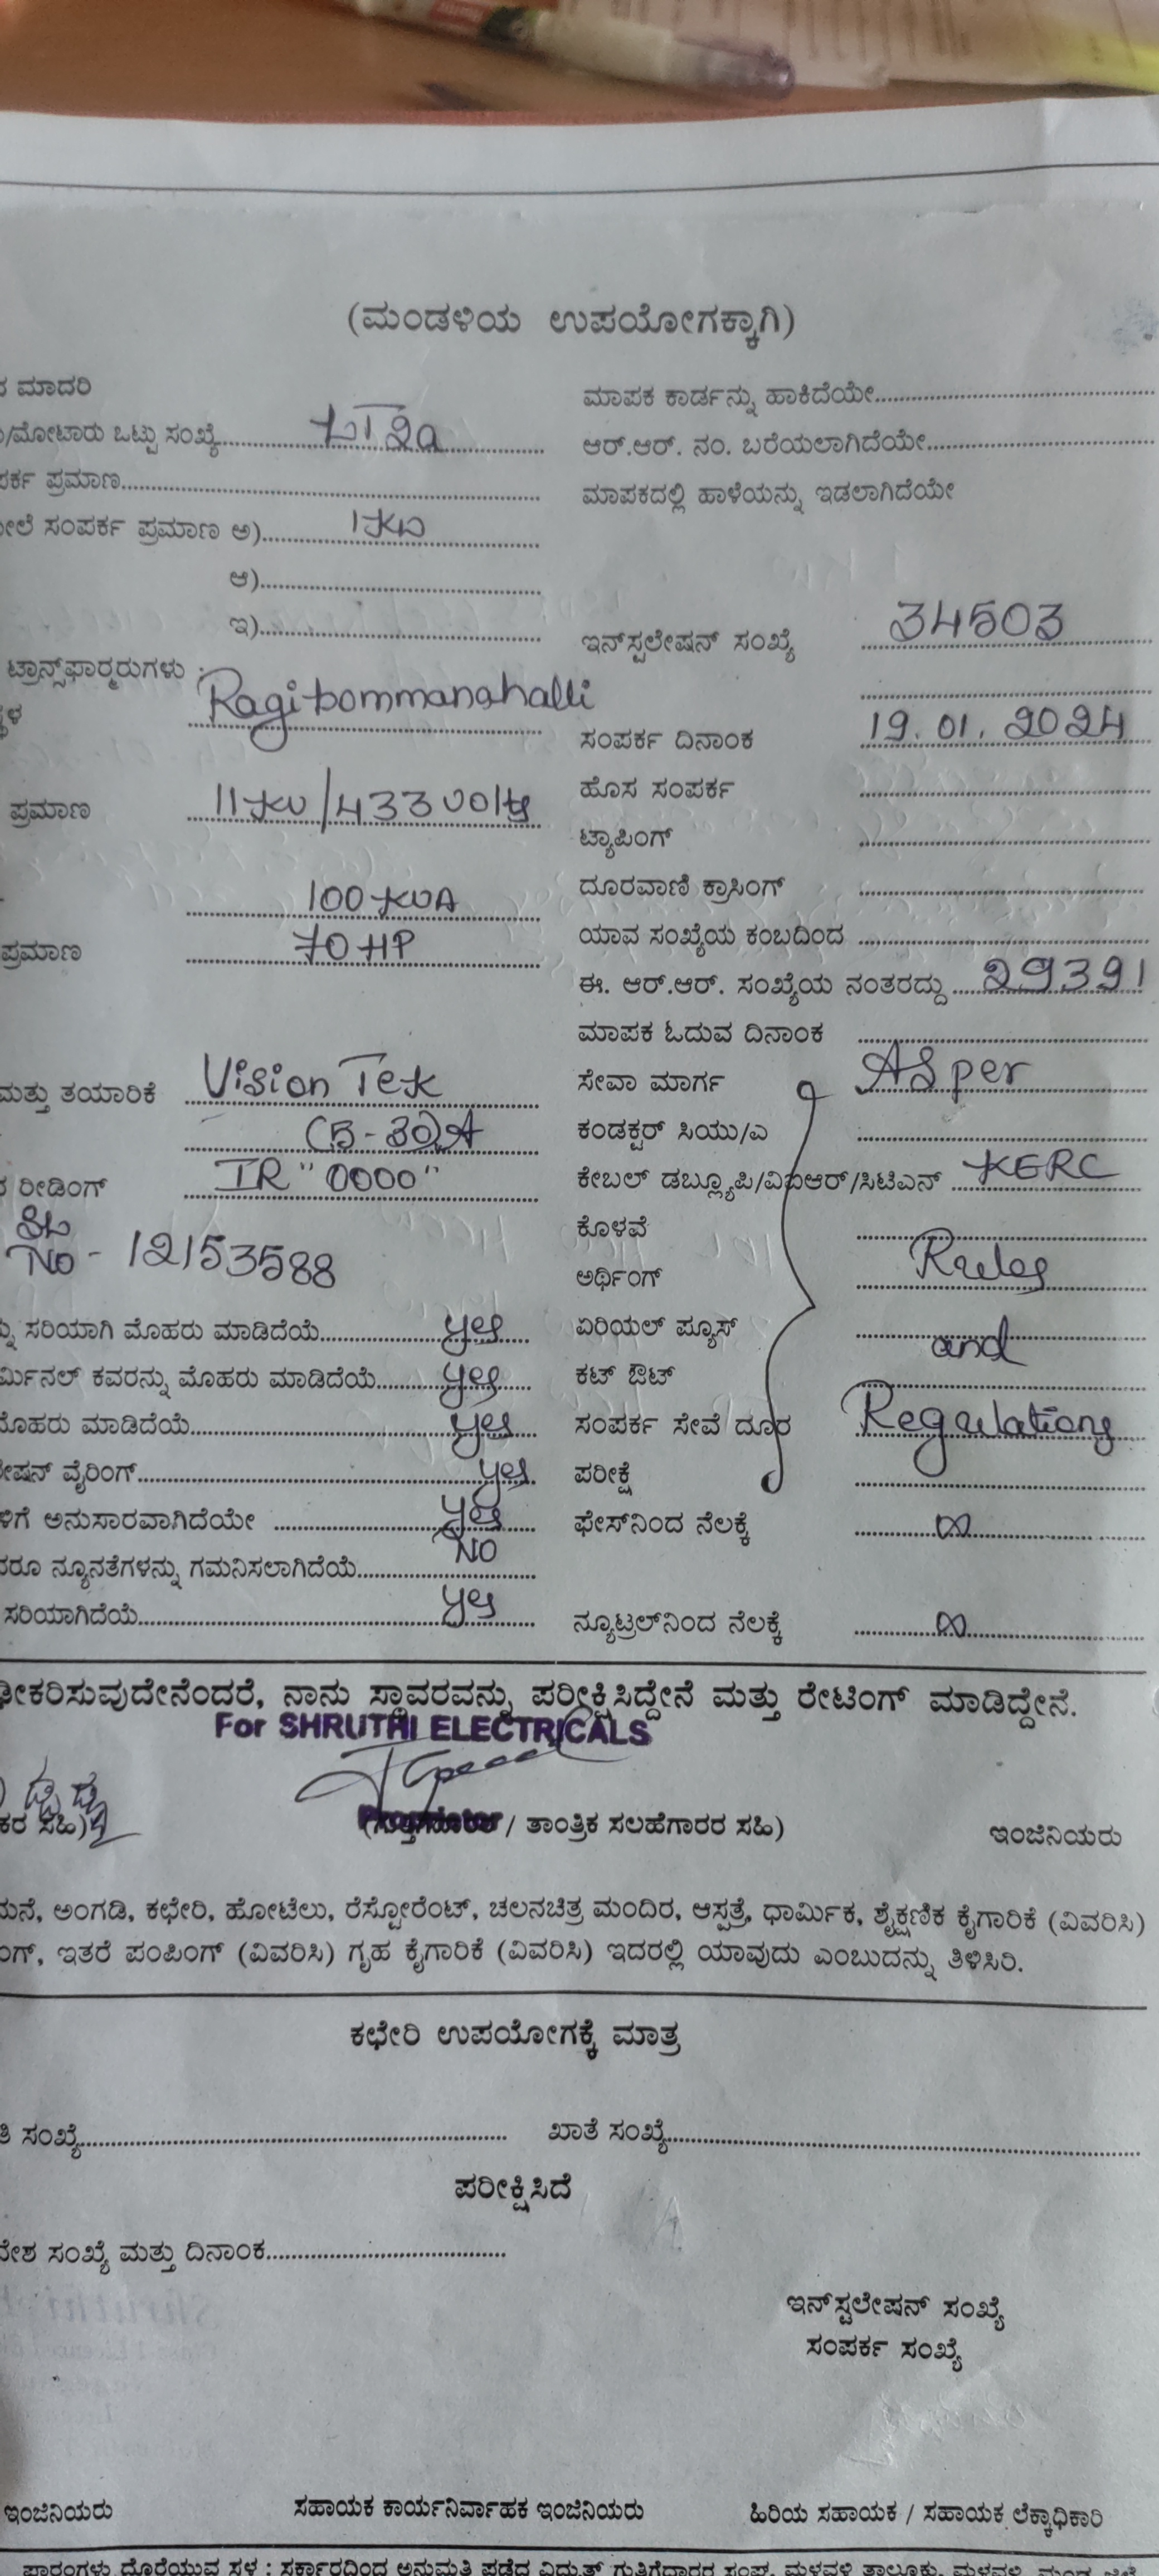 (ಮಂಡಳಿಯ ಉಪಯೋಗಕ್ಕಾಗಿ)
ಮಾದರಿ
/ಮೋಟಾರು ಒಟ್ಟು ಸಂಖ್ಯೆ LT2a
ಪರ್ಕ ಪ್ರಮಾಣ
ಮೇಲೆ ಸಂಪರ್ಕ ಪ್ರಮಾಣ ಅ) 1KW
ಆ)
ಇ)
ಟ್ರಾನ್ಸ್‌ಫಾರ್‍ಮರುಗಳು :
ಸ್ಥಳ Ragibommanahalli
ಪ್ರಮಾಣ 11KV/433 volts
100 KVA
ಪ್ರಮಾಣ 70 HP
ಮತ್ತು ತಯಾರಿಕೆ Vision Tek
(5-30)A
ರೀಡಿಂಗ್ IR "0000"
SL
No - 12153588
ಸರಿಯಾಗಿ ಮೊಹರು ಮಾಡಿದೆಯೆ yes
ರ್ಮಿನಲ್ ಕವರನ್ನು ಮೊಹರು ಮಾಡಿದೆಯೆ yes
ಮೊಹರು ಮಾಡಿದೆಯೆ yes
ೇಷನ್ ವೈರಿಂಗ್ yes
ಳಿಗೆ ಅನುಸಾರವಾಗಿದೆಯೇ yes
ದರೂ ನ್ಯೂನತೆಗಳನ್ನು ಗಮನಿಸಲಾಗಿದೆಯೆ NO
ಸರಿಯಾಗಿದೆಯೆ yes
ಮಾಪಕ ಕಾರ್ಡನ್ನು ಹಾಕಿದೆಯೇ
ಆರ್.ಆರ್. ನಂ. ಬರೆಯಲಾಗಿದೆಯೇ
ಮಾಪಕದಲ್ಲಿ ಹಾಳೆಯನ್ನು ಇಡಲಾಗಿದೆಯೇ
ಇನ್‌ಸ್ಟಲೇಷನ್ ಸಂಖ್ಯೆ 34503
ಸಂಪರ್ಕ ದಿನಾಂಕ 19.01.2024
ಹೊಸ ಸಂಪರ್ಕ
ಟ್ಯಾಪಿಂಗ್
ದೂರವಾಣಿ ಕ್ರಾಸಿಂಗ್
ಯಾವ ಸಂಖ್ಯೆಯ ಕಂಬದಿಂದ
ಈ. ಆರ್.ಆರ್. ಸಂಖ್ಯೆಯ ನಂತರದ್ದು 29391
ಮಾಪಕ ಓದುವ ದಿನಾಂಕ
ಸೇವಾ ಮಾರ್ಗ As per
ಕಂಡಕ್ಟರ್ ಸಿಯು/ಎ
ಕೇಬಲ್ ಡಬ್ಲ್ಯೂಪಿ/ವಿಐಆರ್/ಸಿಟಿಎಸ್ KERC
ಕೊಳವೆ
ಅರ್ಥಿಂಗ್ Rules
ಏರಿಯಲ್ ಫ್ಯೂಸ್ and
ಕಟ್ ಔಟ್
ಸಂಪರ್ಕ ಸೇವೆ ದೂರ Regulations
ಪರೀಕ್ಷೆ
ಫೇಸ್‌ನಿಂದ ನೆಲಕ್ಕೆ ∞
ನ್ಯೂಟ್ರಲ್‌ನಿಂದ ನೆಲಕ್ಕೆ ∞
ಢೀಕರಿಸುವುದೇನೆಂದರೆ, ನಾನು ಸ್ಥಾವರವನ್ನು ಪರೀಕ್ಷಿಸಿದ್ದೇನೆ ಮತ್ತು ರೇಟಿಂಗ್ ಮಾಡಿದ್ದೇನೆ.
For SHRUTHI ELECTRICALS
Proprietor
ಕರ ಸಹಿ) / ತಾಂತ್ರಿಕ ಸಲಹೆಗಾರರ ಸಹಿ) ಇಂಜಿನಿಯರು
ಮನೆ, ಅಂಗಡಿ, ಕಛೇರಿ, ಹೋಟೆಲು, ರೆಸ್ಟೋರೆಂಟ್, ಚಲನಚಿತ್ರ ಮಂದಿರ, ಆಸ್ಪತ್ರೆ, ಧಾರ್ಮಿಕ, ಶೈಕ್ಷಣಿಕ ಕೈಗಾರಿಕೆ (ವಿವರಿಸಿ)
ಂಗ್, ಇತರೆ ಪಂಪಿಂಗ್ (ವಿವರಿಸಿ) ಗೃಹ ಕೈಗಾರಿಕೆ (ವಿವರಿಸಿ) ಇದರಲ್ಲಿ ಯಾವುದು ಎಂಬುದನ್ನು ತಿಳಿಸಿರಿ.
ಕಛೇರಿ ಉಪಯೋಗಕ್ಕೆ ಮಾತ್ರ
ತಿ ಸಂಖ್ಯೆ ಖಾತೆ ಸಂಖ್ಯೆ
ಪರೀಕ್ಷಿಸಿದೆ
ದೇಶ ಸಂಖ್ಯೆ ಮತ್ತು ದಿನಾಂಕ
ಇನ್‌ಸ್ಟಲೇಷನ್ ಸಂಖ್ಯೆ
ಸಂಪರ್ಕ ಸಂಖ್ಯೆ
ಇಂಜಿನಿಯರು ಸಹಾಯಕ ಕಾರ್ಯನಿರ್ವಾಹಕ ಇಂಜಿನಿಯರು ಹಿರಿಯ ಸಹಾಯಕ / ಸಹಾಯಕ ಲೆಕ್ಕಾಧಿಕಾರಿ
ಫಾರಂಗಳು ದೊರೆಯುವ ಸ್ಥಳ : ಸರ್ಕಾರದಿಂದ ಅನುಮತಿ ಪಡೆದ ವಿದ್ಯುತ್ ಗುತ್ತಿಗೆದಾರರ ಸಂಘ, ಮಳವಳ್ಳಿ ತಾಲ್ಲೂಕು, ಮಳವಳ್ಳಿ, ಮಂಡ್ಯ ಜಿಲ್ಲೆ